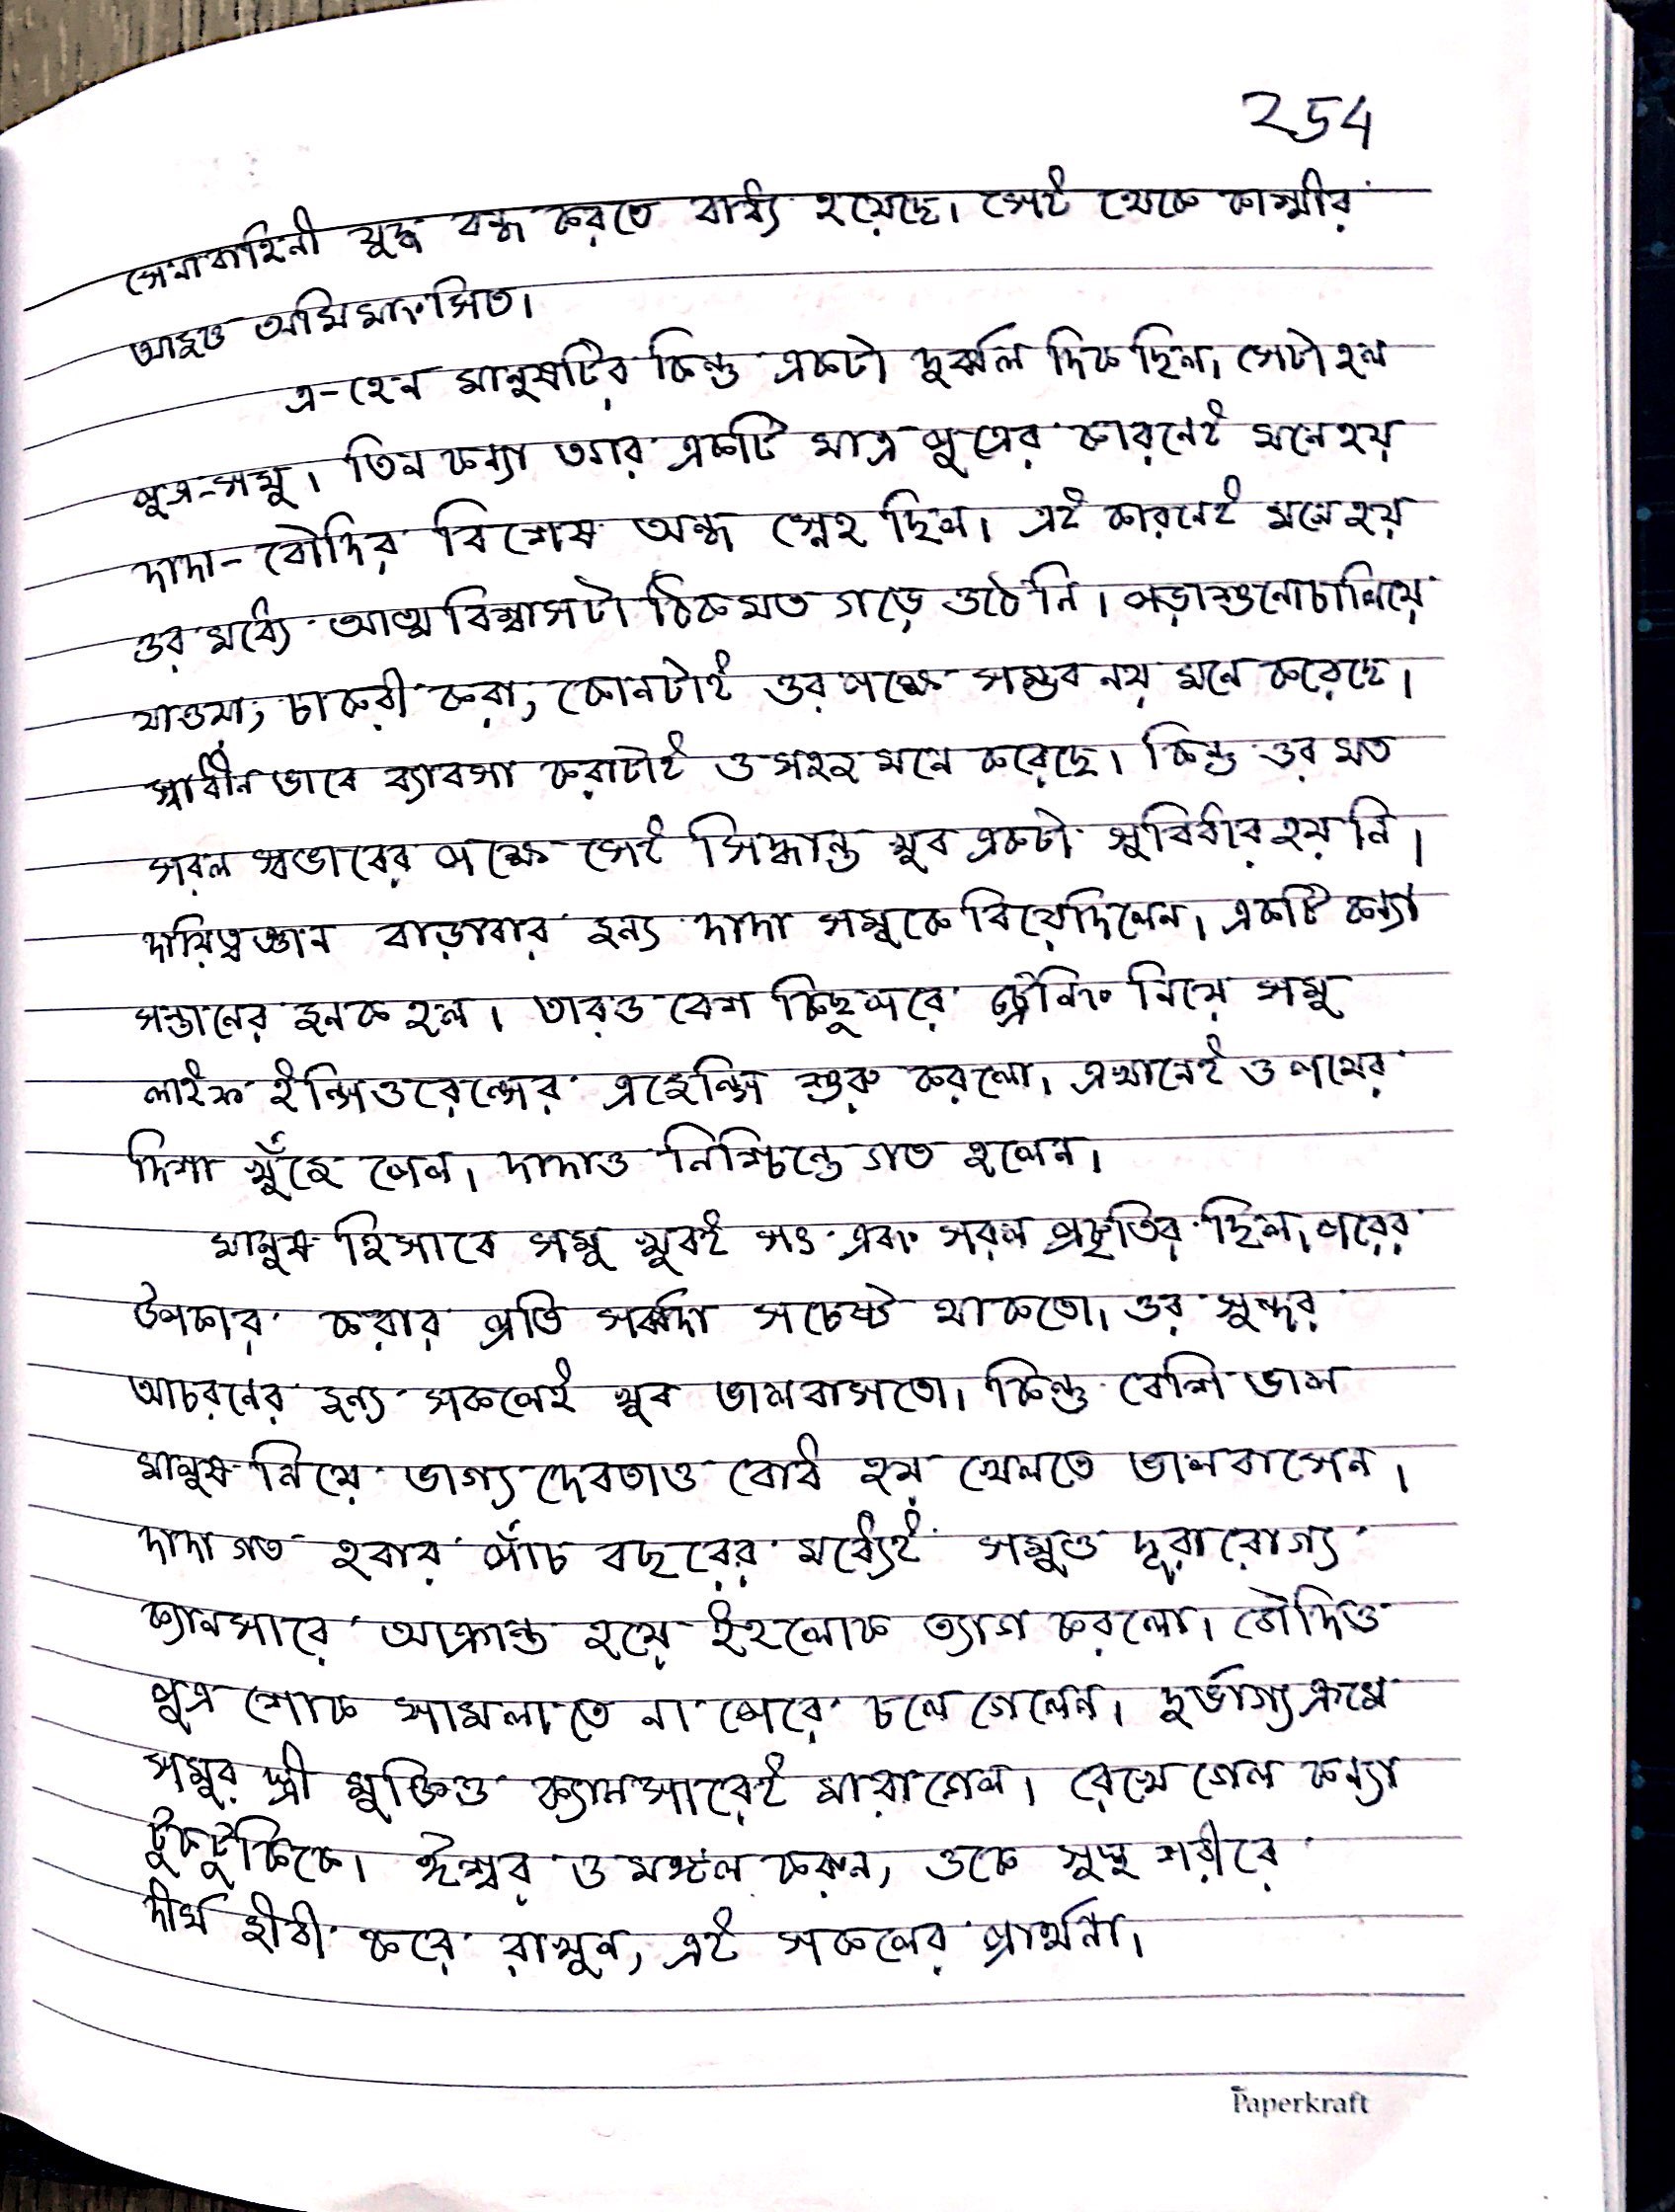 254
সেনাবাহিনী যুদ্ধ বন্ধ করতে বাধ্য হয়েছে। সেই থেকে কাশ্মীর
আজও অমিমাংসিত।
এ-হেন মানুষটির কিন্তু একটা দুর্ব্বল দিক ছিল। সেটা হল
পুত্র-সমু। তিন কন্যা আর একটি মাত্র পুত্রের কারনেই মনে হয়
দাদা-বৌদির বিশেষ অন্ধ স্নেহ ছিল। এই কারনেই মনে হয়
ওর মধ্যে আত্মবিশ্বাসটা ঠিকমত গড়ে ওঠেনি। পড়াশুনো চালিয়ে
যাওয়া, চাকরী করা, কোনটাই ওর পক্ষে সম্ভব নয় মনে করেছে।
স্বাধীন ভাবে ব্যাবসা করাটাই ও সহজ মনে করেছে। কিন্তু ওর মত
সরল স্বভাবের পক্ষে সেই সিদ্ধান্ত খুব একটা সুবিধার হয় নি।
দায়িত্বজ্ঞান বাড়াবার জন্য দাদা সমুকে বিয়ে দিলেন। একটি কন্যা
সন্তানের জনক হল। তারও বেশ কিছু পরে ট্রেনিং নিয়ে সমু
লাইফ ইন্সিওরেন্সের এজেন্সি শুরু করলো। এখানেই ও পথের
দিশা খুঁজে পেল। দাদাও নিশ্চিন্তে গত হলেন।
মানুষ হিসাবে সমু খুবই সৎ এবং সরল প্রকৃতির ছিল। পরের
উপকার করার প্রতি সর্ব্বদা সচেষ্ট থাকতো। ওর সুন্দর
আচরনের জন্য সকলেই খুব ভালবাসতো। কিন্তু বেশি ভাল
মানুষ নিয়ে ভাগ্য দেবতাও বোধ হয় খেলতে ভালবাসেন।
দাদা গত হবার পাঁচ বছরের মধ্যেই সমুও দূরারোগ্য
ক্যানসারে আক্রান্ত হয়ে ইহলোক ত্যাগ করলো। বৌদিও
পুত্র শোক সামলাতে না পেরে চলে গেলেন। দুর্ভাগ্যক্রমে
সমুর স্ত্রী মুক্তিও ক্যানসারেই মারা গেল। রেখে গেল কন্যা
টুকটুকিকে। ঈশ্বর ও মঙ্গল করুন, ওকে সুস্থ শরীরে
দীর্ঘ জীবী করে রাখুন, এই সকলের প্রার্থনা।
Paperkraft